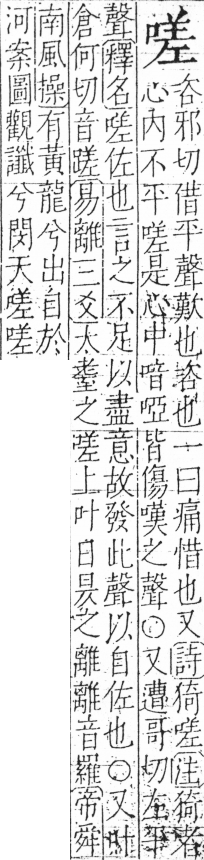 嗟
咨邪切借平聲歎也咨也一曰痛惜也又詩猗嗟注猗者
心內不平嗟是心中喑啞皆傷嘆之聲○又遭哥切左平
聲釋名嗟佐也言之不足以盡意故發此聲以自佐也○又叶
倉何切音蹉易離三爻大耋之嗟上叶日昃之離離音羅帝舜
南風操有黃龍兮出自於
河案圖觀讖兮閔天嗟嗟